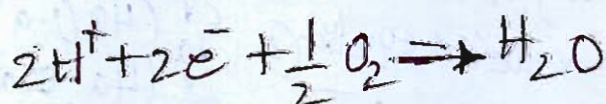 2H⁺ + 2e⁻ + ½ O₂ ⇒ H₂O